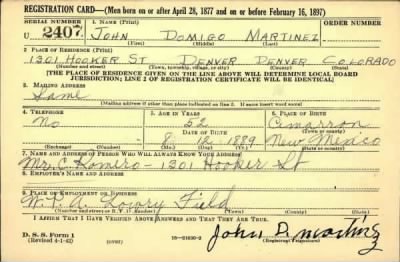 REGISTRATION CARD—(Men born on or after April 28, 1877 and on or before February 16, 1897)
SERIAL NUMBER 1. NAME (Print)
U 2407 JOHN DOMIGO MARTINEZ
(First) (Middle) (Last)
2. PLACE OF RESIDENCE (Print)
1301 HOOKER ST DENVER DENVER COLORADO
(Number and street) (Town, township, village, or city) (County) (State)
[THE PLACE OF RESIDENCE GIVEN ON THE LINE ABOVE WILL DETERMINE LOCAL BOARD
JURISDICTION; LINE 2 OF REGISTRATION CERTIFICATE WILL BE IDENTICAL]
3. MAILING ADDRESS
Same
[Mailing address if other than place indicated on line 2. If same insert word same]
4. TELEPHONE 5. AGE IN YEARS 6. PLACE OF BIRTH
No 52 Cimarron
DATE OF BIRTH (Town or county)
8 12 1889 New Mexico
(Mo.) (Day) (Yr.) (State or country)
7. NAME AND ADDRESS OF PERSON WHO WILL ALWAYS KNOW YOUR ADDRESS
Mr. C. Romero - 1301 Hooker St
8. EMPLOYER'S NAME AND ADDRESS
9. PLACE OF EMPLOYMENT OR BUSINESS
W.P.A. Lowry Field
(Number and street or R. F. D. number) (Town) (County) (State)
I AFFIRM THAT I HAVE VERIFIED ABOVE ANSWERS AND THAT THEY ARE TRUE.
D. S. S. Form 1
(Revised 4-1-42) 16—21630-2 (Registrant's signature)
John D. Martinez